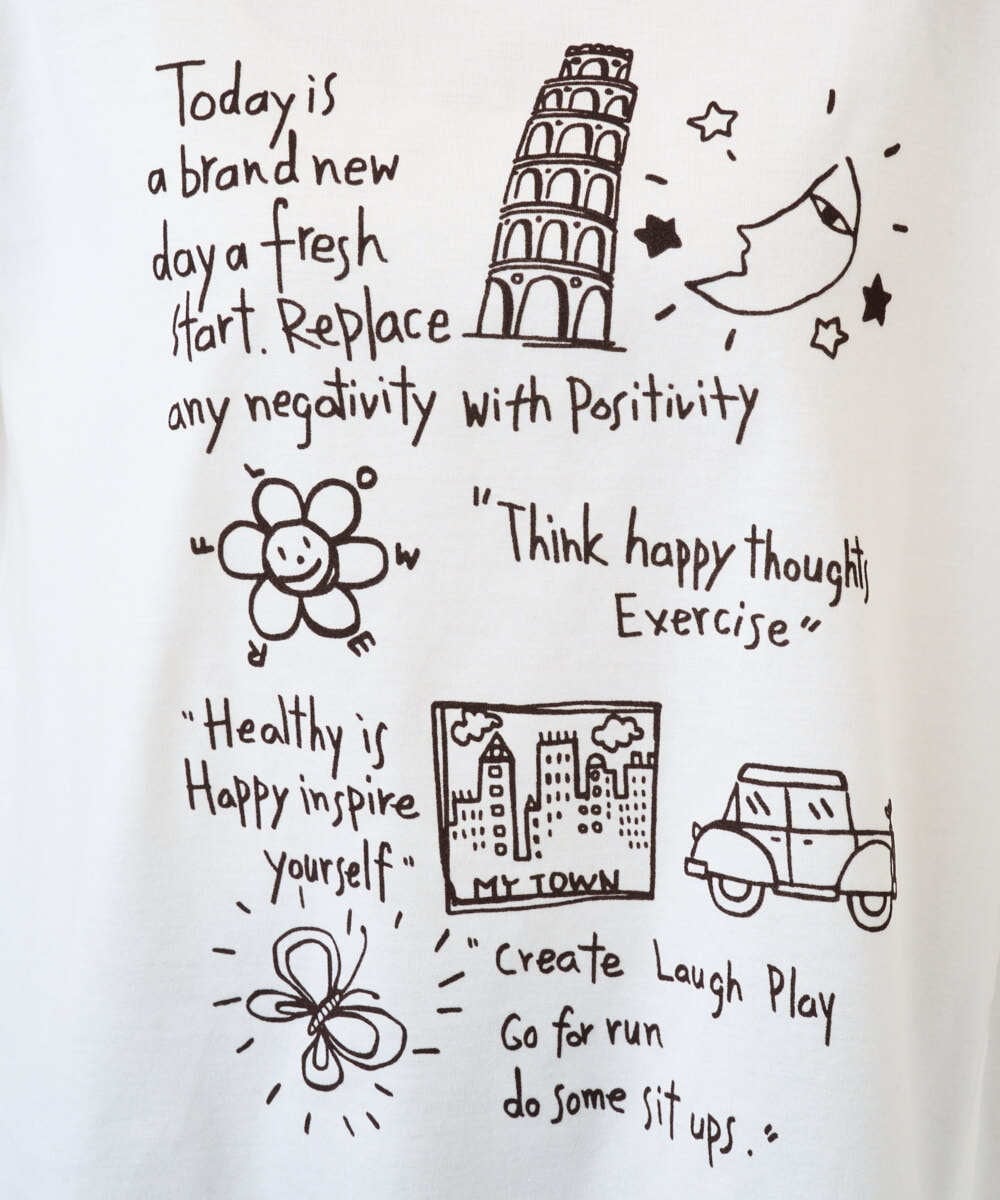 Today is
a brand new
day a fresh
start. Replace
any negativity with Positivity
FLOWER
"Think happy thoughts
Exercise"
"Healthy is
Happy inspire
yourself"
MY TOWN
"Create Laugh Play
Go for run
do some sit ups."